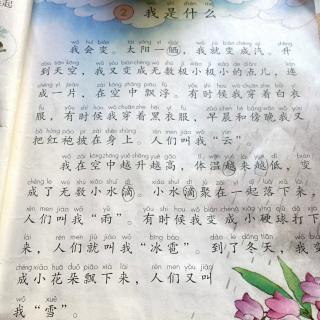 起
2 我是什么
我会变。太阳一晒，我就变成汽。升
到天空，我又变成无数极小极小的点儿，连
成一片，在空中飘浮。有时候我穿着白衣
服，有时候我穿着黑衣服，早晨和傍晚我又
把红袍披在身上。人们叫我“云”。
我在空中越升越高，体温越来越低，变
成了无数小水滴。小水滴聚在一起落下来，
人们叫我“雨”。有时候我变成小硬球打下
来，人们就叫我“冰雹”。到了冬天，我变
成小花朵飘下来，人们又叫
我“雪”。